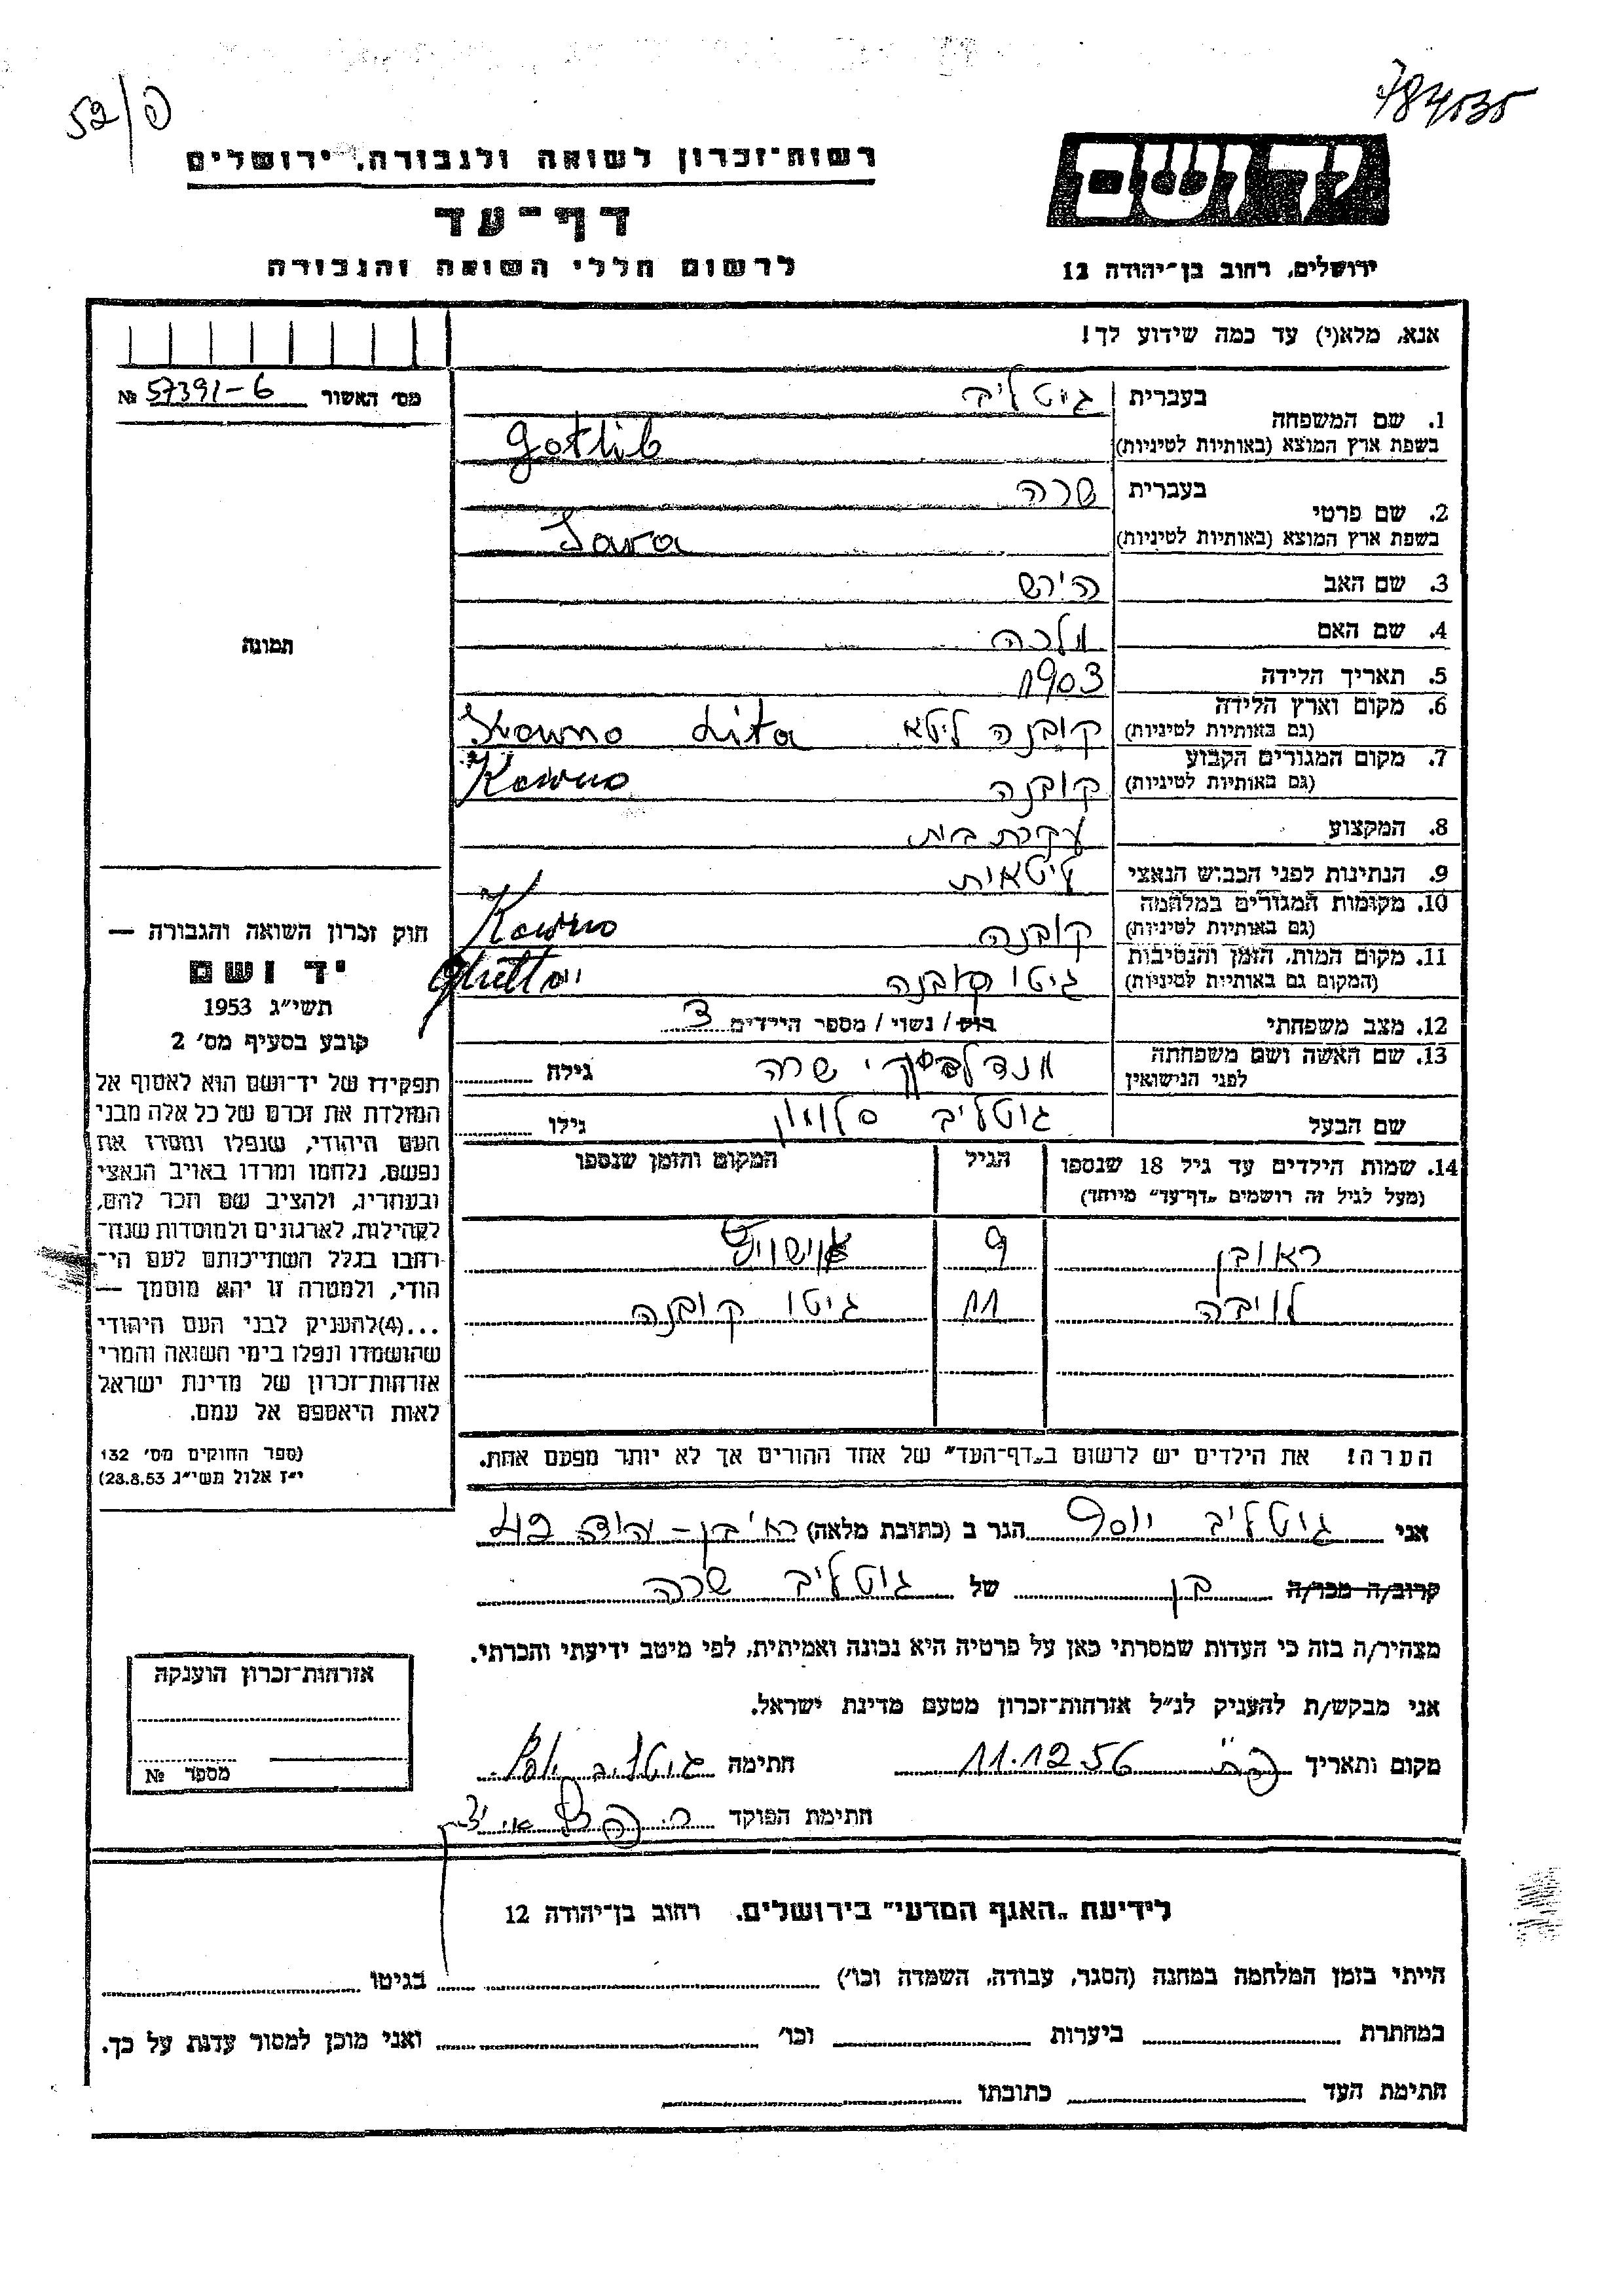 52/פ
784535
רשות־זכרון לשואה ולגבורה, ירושלים
יד ושם
דף־עד
לרשום חללי השואה והגבורה
ירושלים, רחוב בן־יהודה 12
אנא, מלא(י) עד כמה שידוע לך!
מס׳ האשור № 57391-6
1. שם המשפחה בעברית גוטליב
בשפת ארץ המוצא (באותיות לטיניות) Gotlib
2. שם פרטי בעברית שרה
בשפת ארץ המוצא (באותיות לטיניות) Sara
3. שם האב הירש
4. שם האם מלכה
תמונה
5. תאריך הלידה 1903
6. מקום וארץ הלידה (גם באותיות לטיניות) קובנה ליטא Lita Kowno
7. מקום המגורים הקבוע (גם באותיות לטיניות) קובנה Kowno
8. המקצוע עקרת בית
9. הנתינות לפני הכבוש הנאצי ליטאית
10. מקומות המגורים במלחמה (גם באותיות לטיניות) קובנה Kowno
11. מקום המות, הזמן והנסיבות (המקום גם באותיות לטיניות) גיטו קובנה Ghetto
12. מצב משפחתי רוק/ נשוי/ מספר הילדים 3
13. שם האשה ושם משפחתה לפני הנישואין שרה גילה
שם הבעל גוטליב סלומון גילו
14. שמות הילדים עד גיל 18 שנספו הגיל המקום והזמן שנספו
(מעל לגיל זה רושמים „דף־עד” מיוחד)
ראובן 9 אושויץ
ליבה 11 גיטו קובנה
הערה! את הילדים יש לרשום ב„דף־העד” של אחד ההורים אך לא יותר מפעם אחת.
חוק זכרון השואה והגבורה —
יד ושם
תשי״ג 1953
קובע בסעיף מס׳ 2
תפקידו של יד־ושם הוא לאסוף אל
המולדת את זכרם של כל אלה מבני
העם היהודי, שנפלו ומסרו את
נפשם, נלחמו ומרדו באויב הנאצי
ובעוזריו, ולהציב שם וזכר להם,
לקהילות, לארגונים ולמוסדות שנח־
רבו בגלל השתייכותם לעם הי־
הודי, ולמטרה זו יהא מוסמך —
...(4) להעניק לבני העם היהודי
שהושמדו ונפלו בימי השואה והמרי
אזרחות־זכרון של מדינת ישראל
לאות היאספם אל עמם.
(ספר החוקים מס׳ 132
י״ז אלול תשי״ג 28.8.53)
אני גוטליב יוסף הגר ב (כתובת מלאה) רח׳ בן־יהודה 42
קרוב/ה מכר/ה בן של גוטליב שרה
מצהיר/ה בזה כי העדות שמסרתי כאן על פרטיה היא נכונה ואמיתית, לפי מיטב ידיעתי והכרתי.
אני מבקש/ת להעניק לנ״ל אזרחות־זכרון מטעם מדינת ישראל.
מקום ותאריך 11.12.56 חתימה גוטליב יוסף
חתימת הפוקד
אזרחות־זכרון הוענקה
מספר №
לידיעת „האגף המדעי” בירושלים, רחוב בן־יהודה 12
הייתי בזמן המלחמה במחנה (הסגר, עבודה, השמדה וכו׳) בגיטו
במחתרת ביערות וכו׳ ואני מוכן למסור עדות על כך.
חתימת העד כתובתו